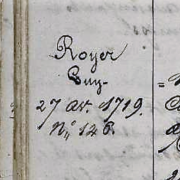 Royer
Guy.
27 av. 1719.
N.º 146.